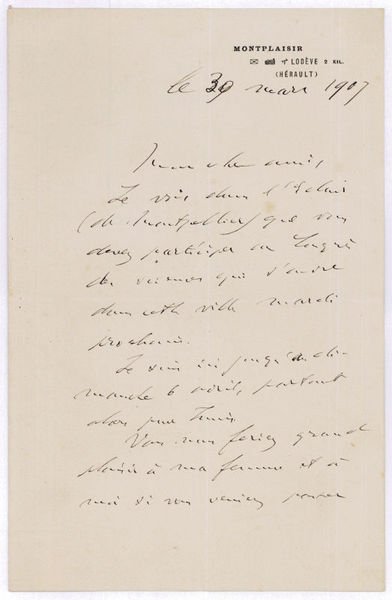 MONTPLAISIR
LODÈVE 2 KIL.
(HÉRAULT)
le 30 mars 1907
Mon cher ami,
Je vois dans l'Eclair
(de Montpellier) que vous
devez participer au Congrès
des sciences qui s'ouvre
dans cette ville mardi
prochain.
Je suis ici jusqu'au di-
manche 6 avril, partant
alors pour Tunis.
Vous nous feriez grand
plaisir à ma femme et à
moi si vous veniez passer